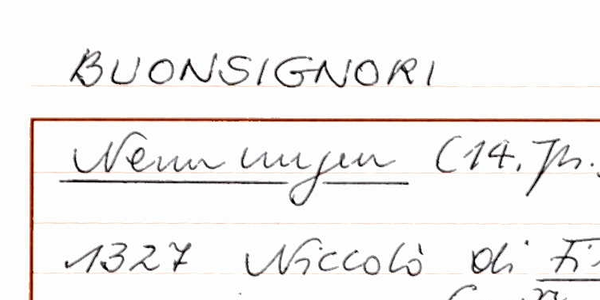 BUONSIGNORI
Nennungen (14. Jh.
1327 Niccolò di